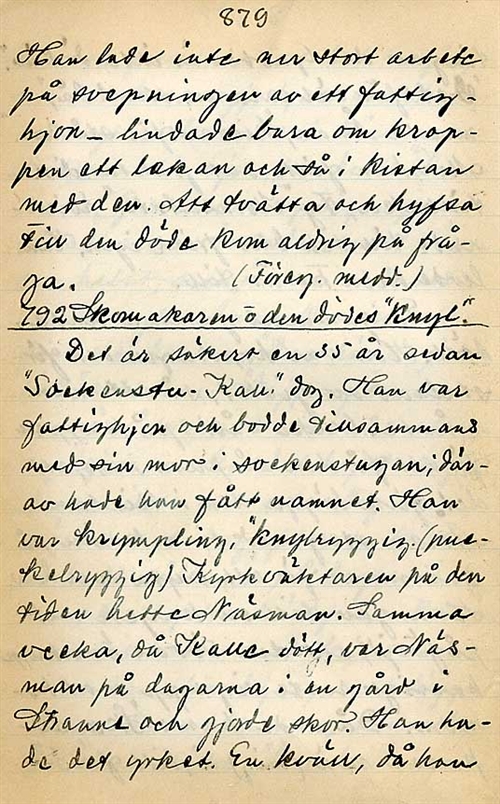 879
Han lade inte ner stort arbete
på svepningen av ett fattig-
hjon – lindade bara om krop-
pen ett lakan och så i kistan
med den. Att tvätta och hyfsa
till den döde kom aldrig på frå-
ga. (Föreg. medd.)
792 Skomakaren o den dödes "Knyl".
Det är säkert en 35 år sedan
"Sockenstu-Kall." dog. Han var
fattighjon och bodde tillsammans
med sin mor i sockenstugan; där-
av hade han fått namnet. Han
var krympling, "knylryggig. (puc-
kelryggig) Kyrkväktaren på den
tiden hette Näsman. Samma
vecka, då Kalle dött, var Näs-
man på dagarna i en gård i
Stranne och gjorde skor. Han ha-
de det yrket. En kväll, då han